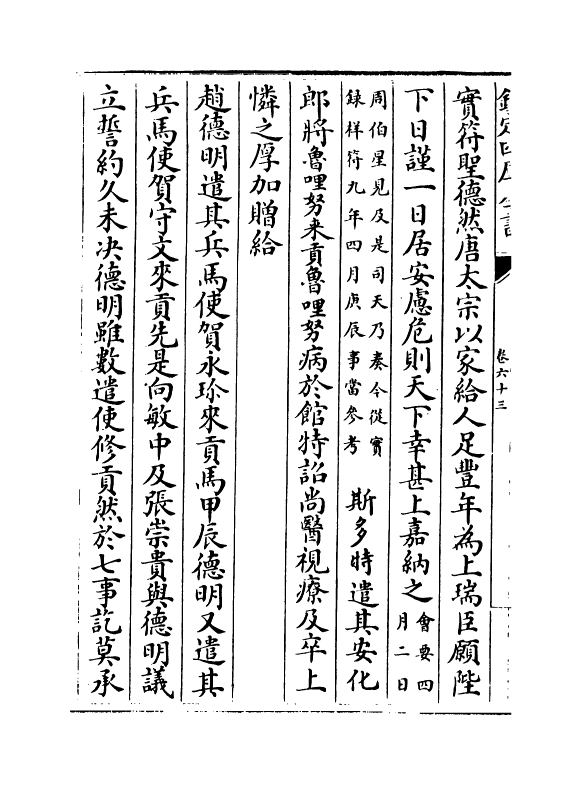 欽定四庫全書
卷六十三
實符聖德然唐太宗以家給人足豐年為上瑞臣願陛
下日謹一日居安慮危則天下幸甚上嘉納之會要四
月二日
周伯星見及是司天乃奏今從實
録祥符九年四月庚辰事當參考
斯多時遣其安化
郎將魯哩努来貢魯哩努病於館特詔尚醫視療及卒上
憐之厚加贈給
趙德明遣其兵馬使賀永珍來貢馬甲辰德明又遣其
兵馬使賀守文來貢先是向敏中及張崇貴與德明議
立誓約久未决德明雖數遣使修貢然於七事訖莫承